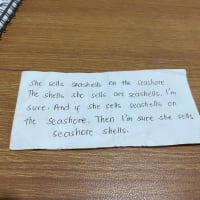 She sells seashells on the seashore.
The shells she sells are seashells, I'm
sure. And if she sells seashells on
the seashore. Then I'm sure she sells
seashore shells.